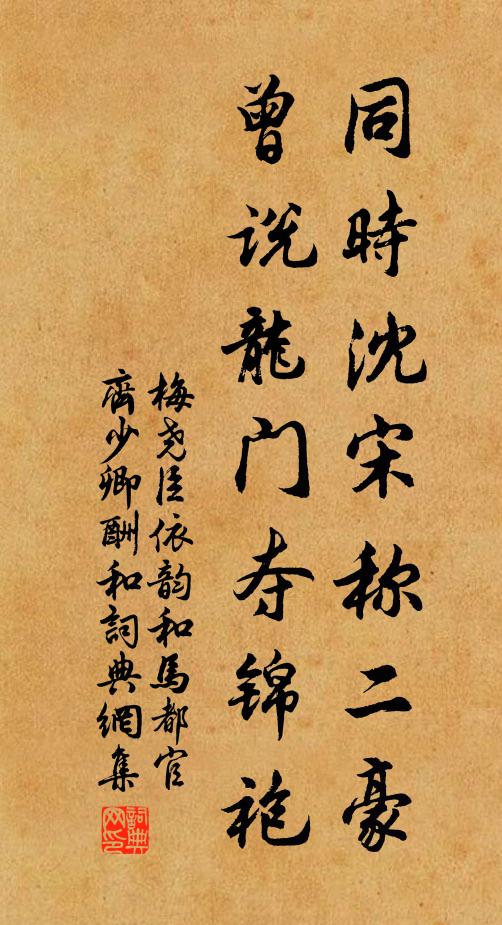 同時沈宋称二豪
曾说龍门夺锦袍
梅尧臣依韵和馬都官
齊少卿酬和詞典網集
詞典网印